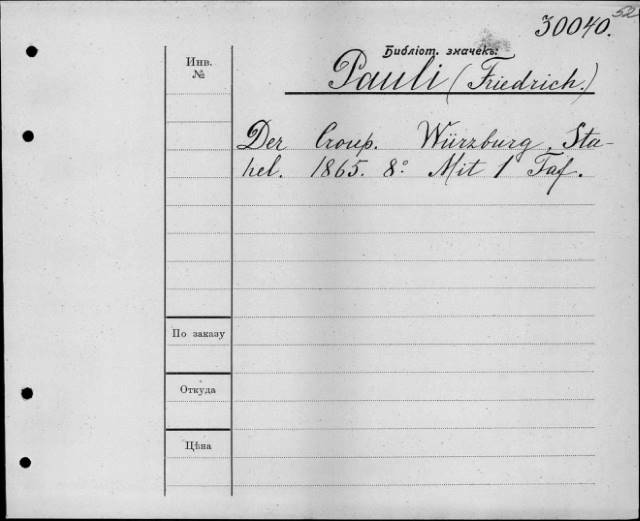 52
30040.
Библіот. значекъ:
Инв.
№
Pauli (Friedrich.)
Der Croup. Würzburg, Sta-
hel. 1865. 8° Mit 1 Taf.
По заказу
Откуда
Цѣна